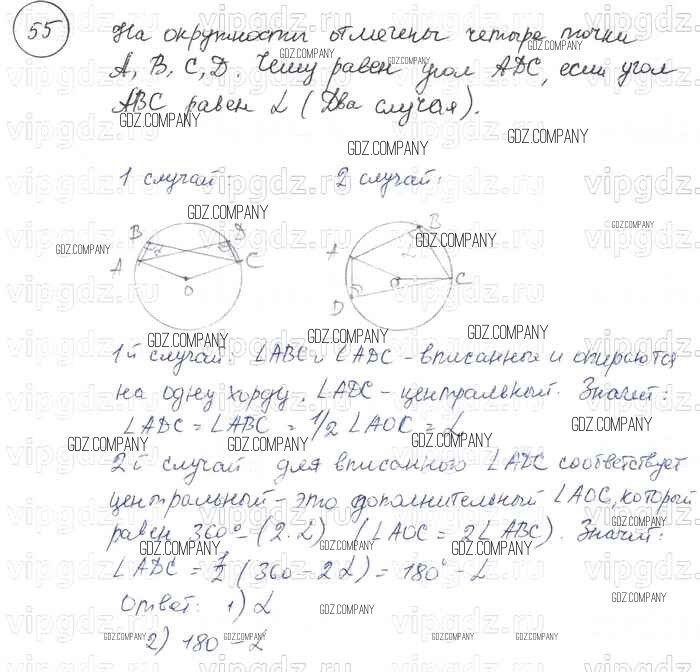 55
На окружности отмечены четыре точки
A, B, C, D. Чему равен угол ADC, если угол
ABC равен α (Два случая).
1 случай: 2 случай:
B D A C O
B A α D O C
1й случай: ∠ABC и ∠ADC - вписанные и опираются
на одну хорду. ∠ADC - центральный. Значит:
∠ADC = ∠ABC = 1/2 ∠AOC = α
2й случай для вписанного ∠ADC соответствует
центральный - это дополнительный ∠AOC, который
равен 360° - (2·α) (∠AOC = 2∠ABC). Значит:
∠ADC = 1/2 (360 - 2α) = 180° - α
Ответ: 1) α
2) 180 - α
GDZ.COMPANY
vipgdz.ru